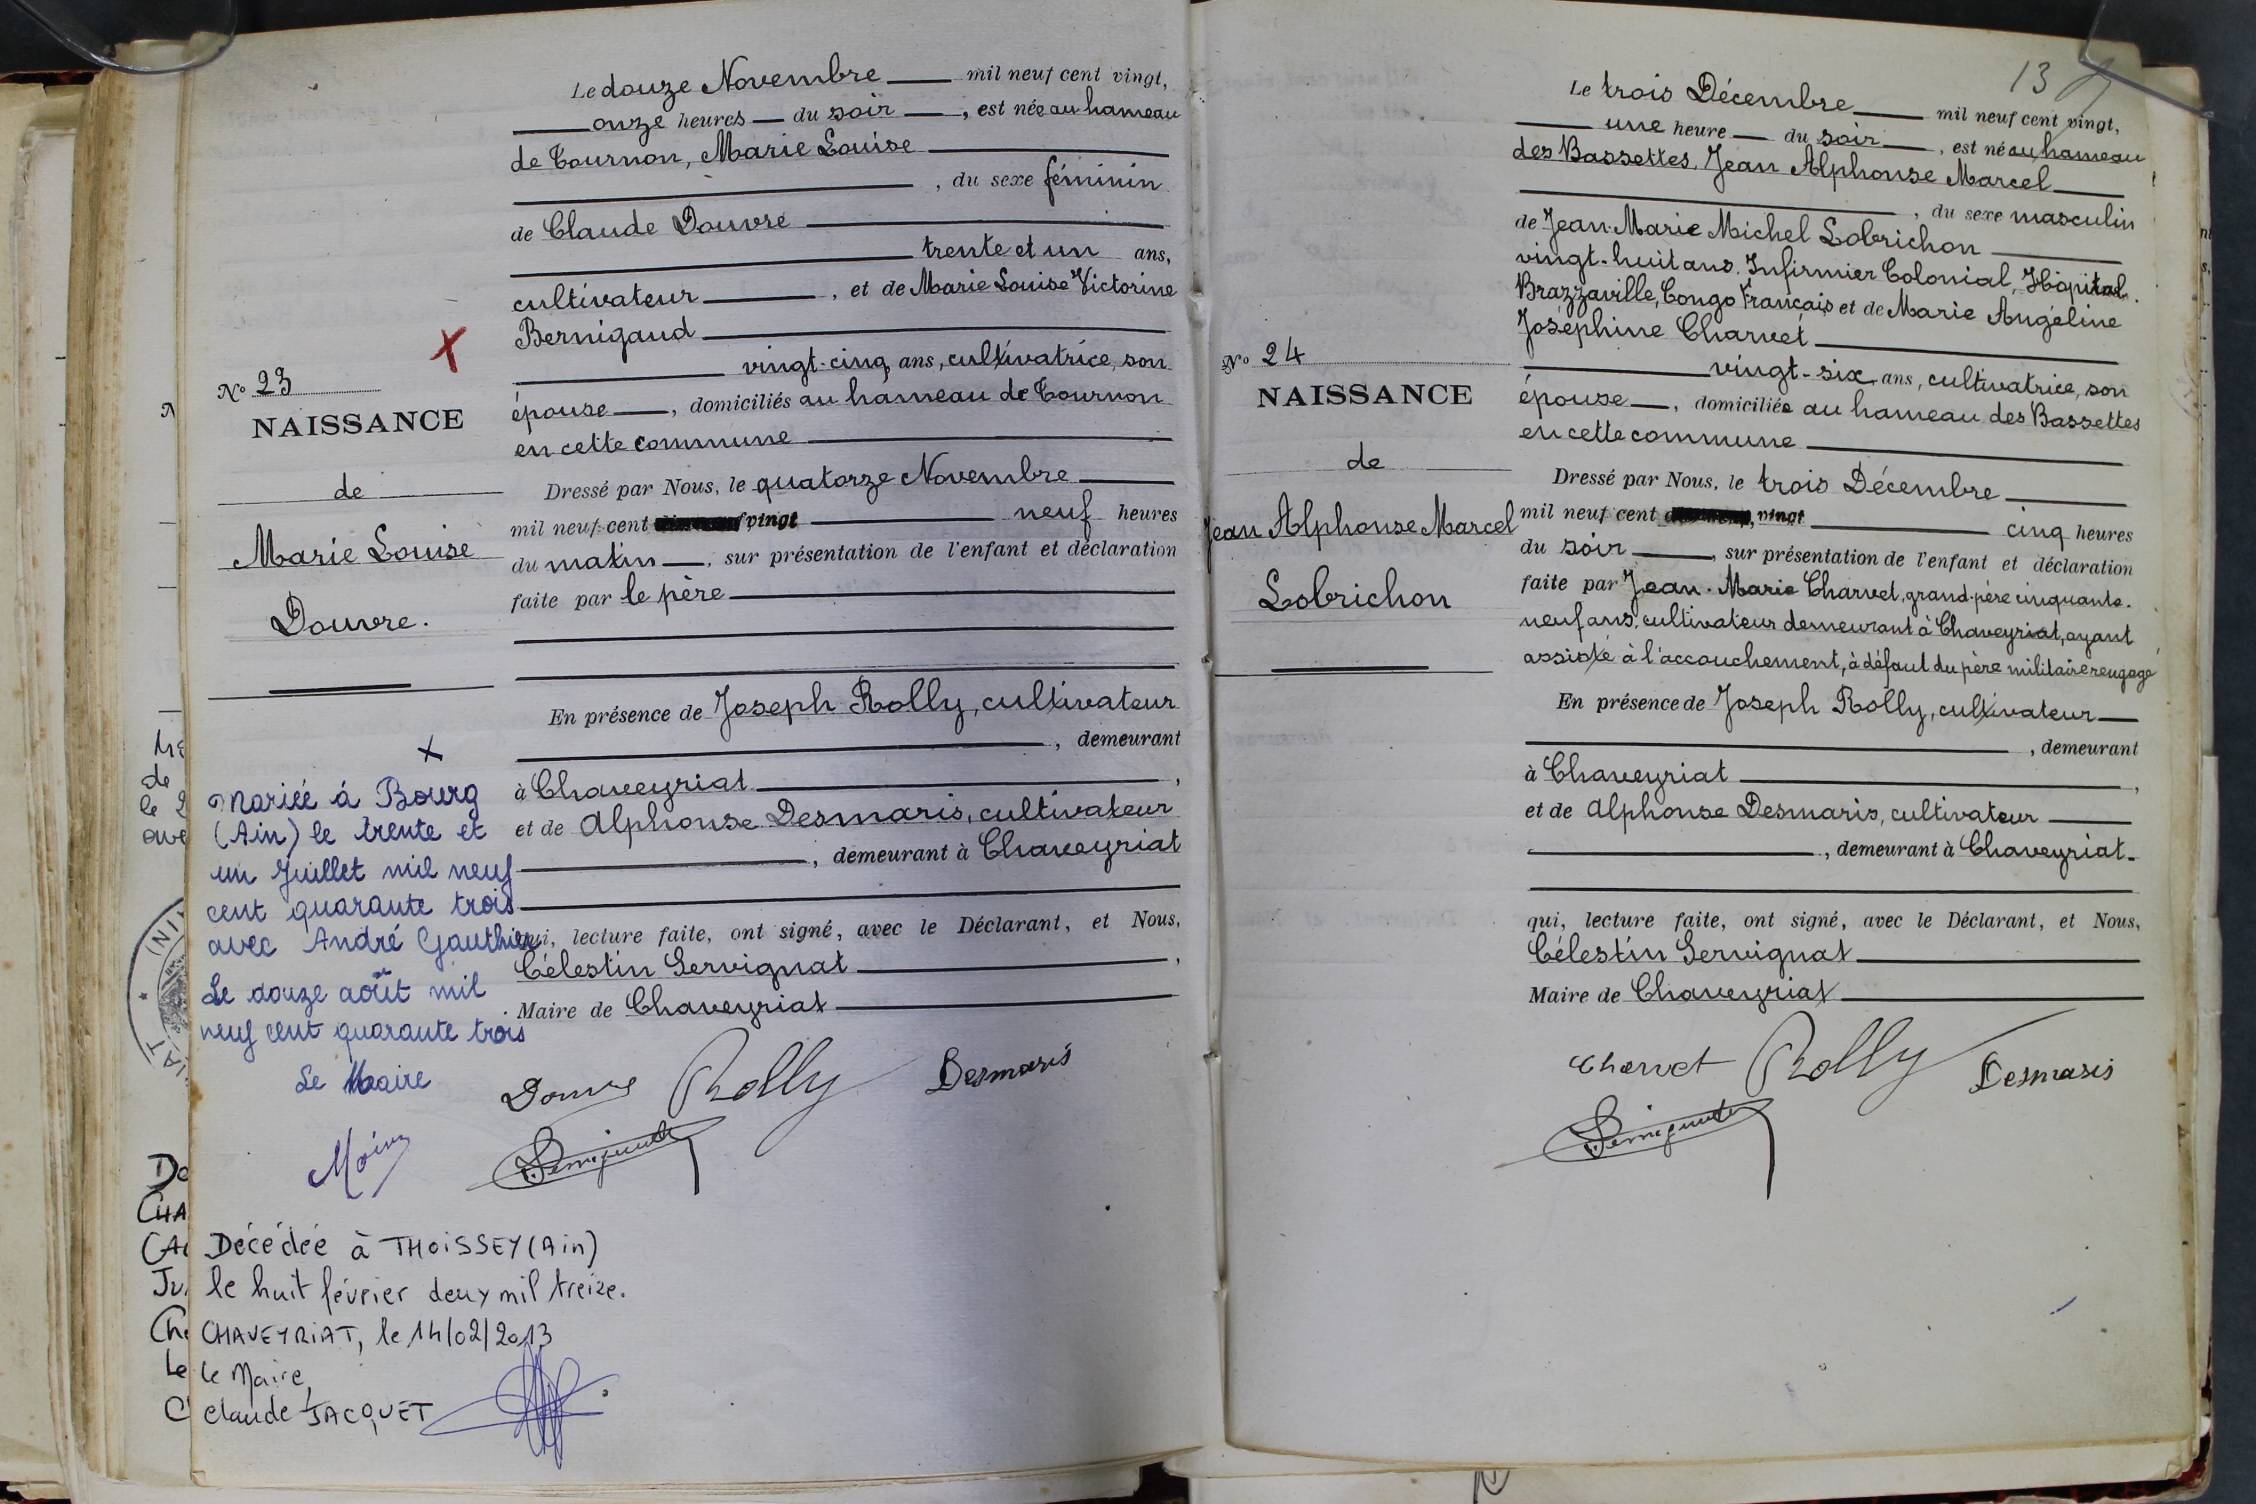 Le douze Novembre mil neuf cent vingt,
onze heures du soir, est née au hameau
de Tournon, Marie Louise
, du sexe féminin
de Claude Douvre
trente et un ans,
cultivateur, et de Marie Louise Victorine
Bernigaud
vingt-cinq ans, cultivatrice, son
épouse, domiciliés au hameau de Tournon
en cette commune
Dressé par Nous, le quatorze Novembre
mil neuf cent vingt neuf heures
du matin, sur présentation de l'enfant et déclaration
faite par le père
En présence de Joseph Rolly, cultivateur
, demeurant
à Chaveyriat,
et de Alphonse Desmaris, cultivateur
, demeurant à Chaveyriat
qui, lecture faite, ont signé, avec le Déclarant, et Nous,
Célestin Servignat,
Maire de Chaveyriat
Douvre Rolly Desmaris
Servignat
N° 23
NAISSANCE
de
Marie Louise
Douvre.
Mariée à Bourg
(Ain) le trente et
un Juillet mil neuf
cent quarante trois
avec André Gauthier
Le douze août mil
neuf cent quarante trois
Le Maire
Décédée à THOISSEY (Ain)
le huit février deux mil treize.
CHAVEYRIAT, le 14/02/2013
Le Maire,
Claude JACQUET
13
Le trois Décembre mil neuf cent vingt,
une heure du soir, est né au hameau
des Bassettes, Jean Alphonse Marcel
, du sexe masculin
de Jean-Marie Michel Lobrichon
vingt-huit ans, Infirmier Colonial, Hôpital
Brazzaville, Congo Français et de Marie Angéline
Joséphine Charvet
vingt-six ans, cultivatrice, son
épouse, domiciliée au hameau des Bassettes
en cette commune
Dressé par Nous, le trois Décembre
mil neuf cent vingt cinq heures
du soir, sur présentation de l'enfant et déclaration
faite par Jean-Marie Charvet, grand-père cinquante-
neuf ans, cultivateur demeurant à Chaveyriat, ayant
assisté à l'accouchement, à défaut du père militaire rengagé
En présence de Joseph Rolly, cultivateur
, demeurant
à Chaveyriat,
et de Alphonse Desmaris, cultivateur
, demeurant à Chaveyriat.
qui, lecture faite, ont signé, avec le Déclarant, et Nous,
Célestin Servignat
Maire de Chaveyriat
Charvet Rolly Desmaris
Servignat
N° 24
NAISSANCE
de
Jean Alphonse Marcel
Lobrichon